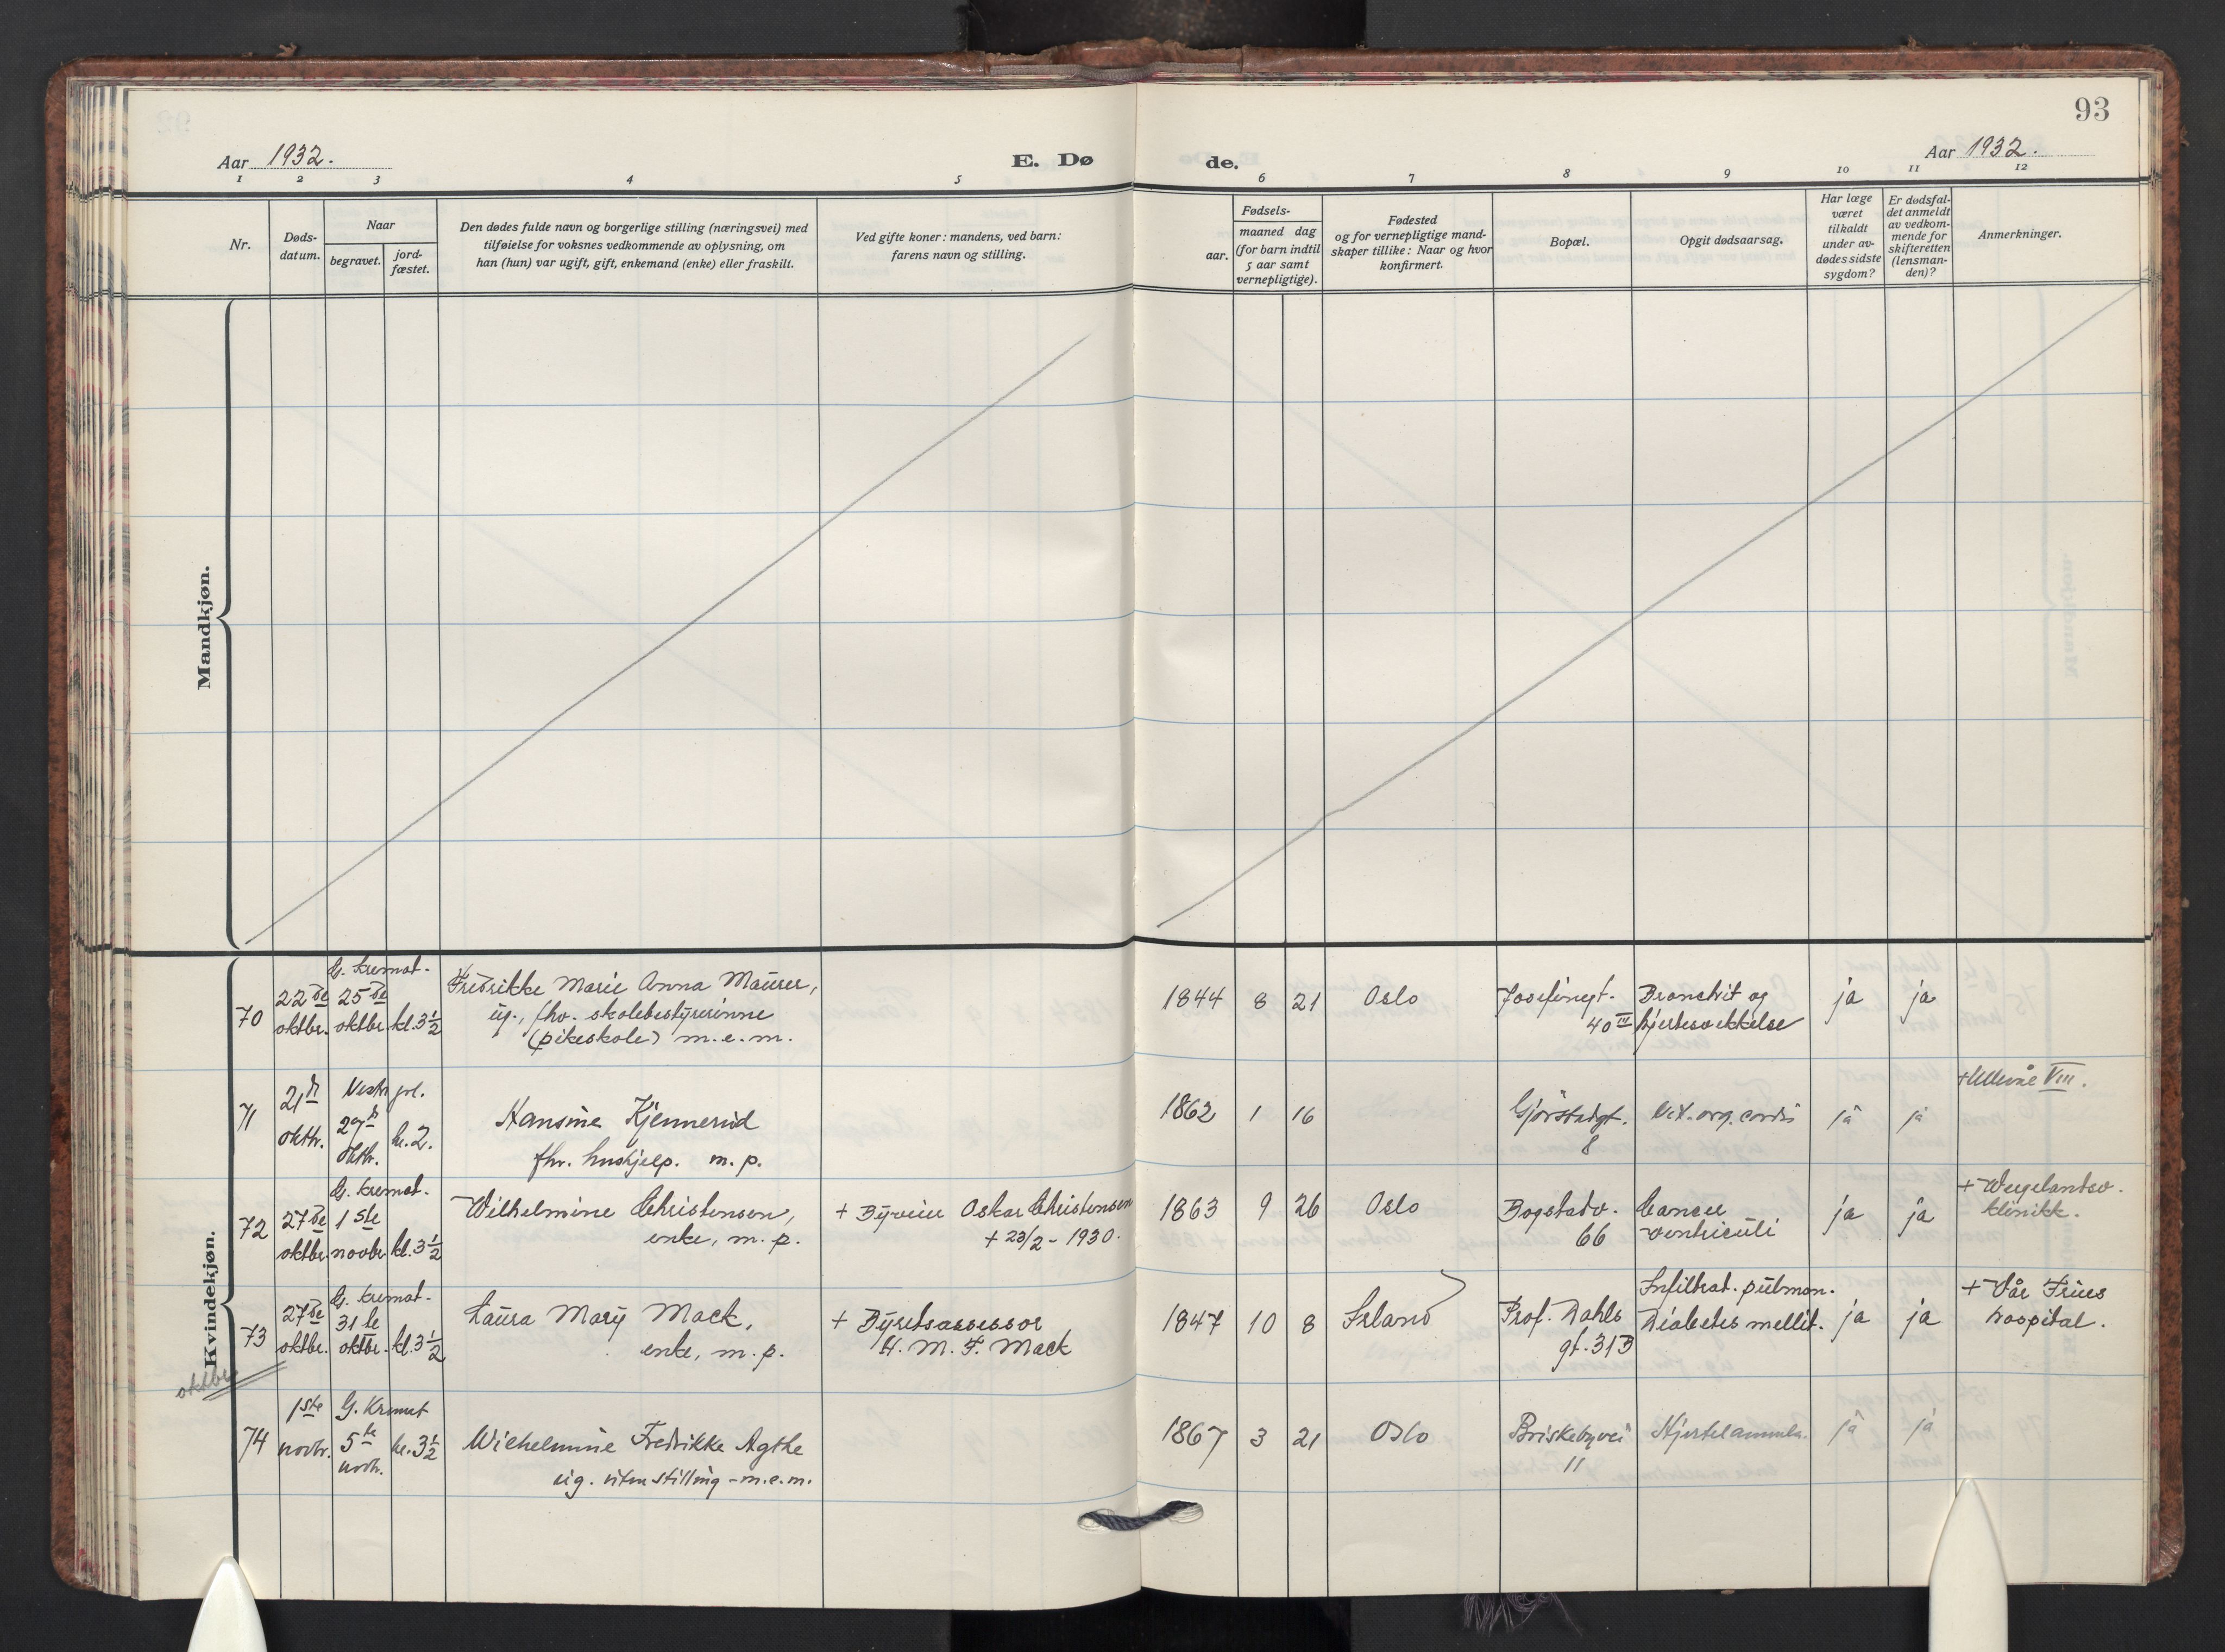 93
Aar 1932.
E. Dø
de.
Aar 1932.
1 2 3 4 5 6 7 8 9 10 11 12
Nr.
Døds-
datum.
Naar
begravet.
jord-
fæstet.
Den dødes fulde navn og borgerlige stilling (næringsvei) med
tilføielse for voksnes vedkommende av oplysning, om
han (hun) var ugift, gift, enkemand (enke) eller fraskilt.
Ved gifte koner: mandens, ved barn:
farens navn og stilling.
Fødsels-
aar.
maaned dag
(for barn indtil
5 aar samt
vernepligtige).
Fødested
og for vernepligtige mand-
skaper tillike: Naar og hvor
konfirmert.
Bopæl.
Opgit dødsaarsag.
Har læge
været
tilkaldt
under av-
dødes sidste
sygdom?
Er dødsfal-
det anmeldt
av vedkom-
mende for
skifteretten
(lensman-
den)?
Anmerkninger.
Mandkjøn.
Kvindekjøn.
70
22de
oktbr.
G. kremat.
25de
oktbr.
kl. 3½
Fredrikke Marie Anna Maurer,
ug., fhv. skolebestyrerinne
(pikeskole) m.e.m.
1844 8 21
Oslo
Josefinegt.
40 III
Bronchit og
hjertesvekkelse
ja
ja
71
21
oktbr.
Vestre grl.
29
oktbr.
kl. 2.
Hansine Kjennerud
fhv. hushjelp. m.p.
1862 1 16
8
Vit. org. cordis
ja
ja
+ Ullevål VIII.
72
27de
oktbr.
G. kremat.
1ste
novbr.
kl. 3½
Wilhelmine Christensen,
enke, m.p.
+ Oskar Christensen
+ 23/2 - 1930.
1863 9 26
Oslo
Bogstadv.
66
Cancer
ventriculi
ja
ja
+ Wergelandsv.
klinikk.
73
27de
oktbr.
G. kremat.
31te
oktbr.
kl. 3½
Laura Mary Mack,
enke, m.p.
+ Byretsassessor
H. M. F. Mack
1847 10 8
Irland
Prof. Dahls
gt. 31B
Infiltrat. pulmon.
Diabetes mellit.
ja
ja
+ Vår Frues
hospital.
oktbr.
74
1ste
novbr.
G. Kremat
5te
novbr.
kl. 3½
Wilhelmine Fredrikke Agthe
ug. uten stilling - m.e.m.
1867 3 21
Oslo
Briskebyvei
11
Hjertelammelse.
ja
ja